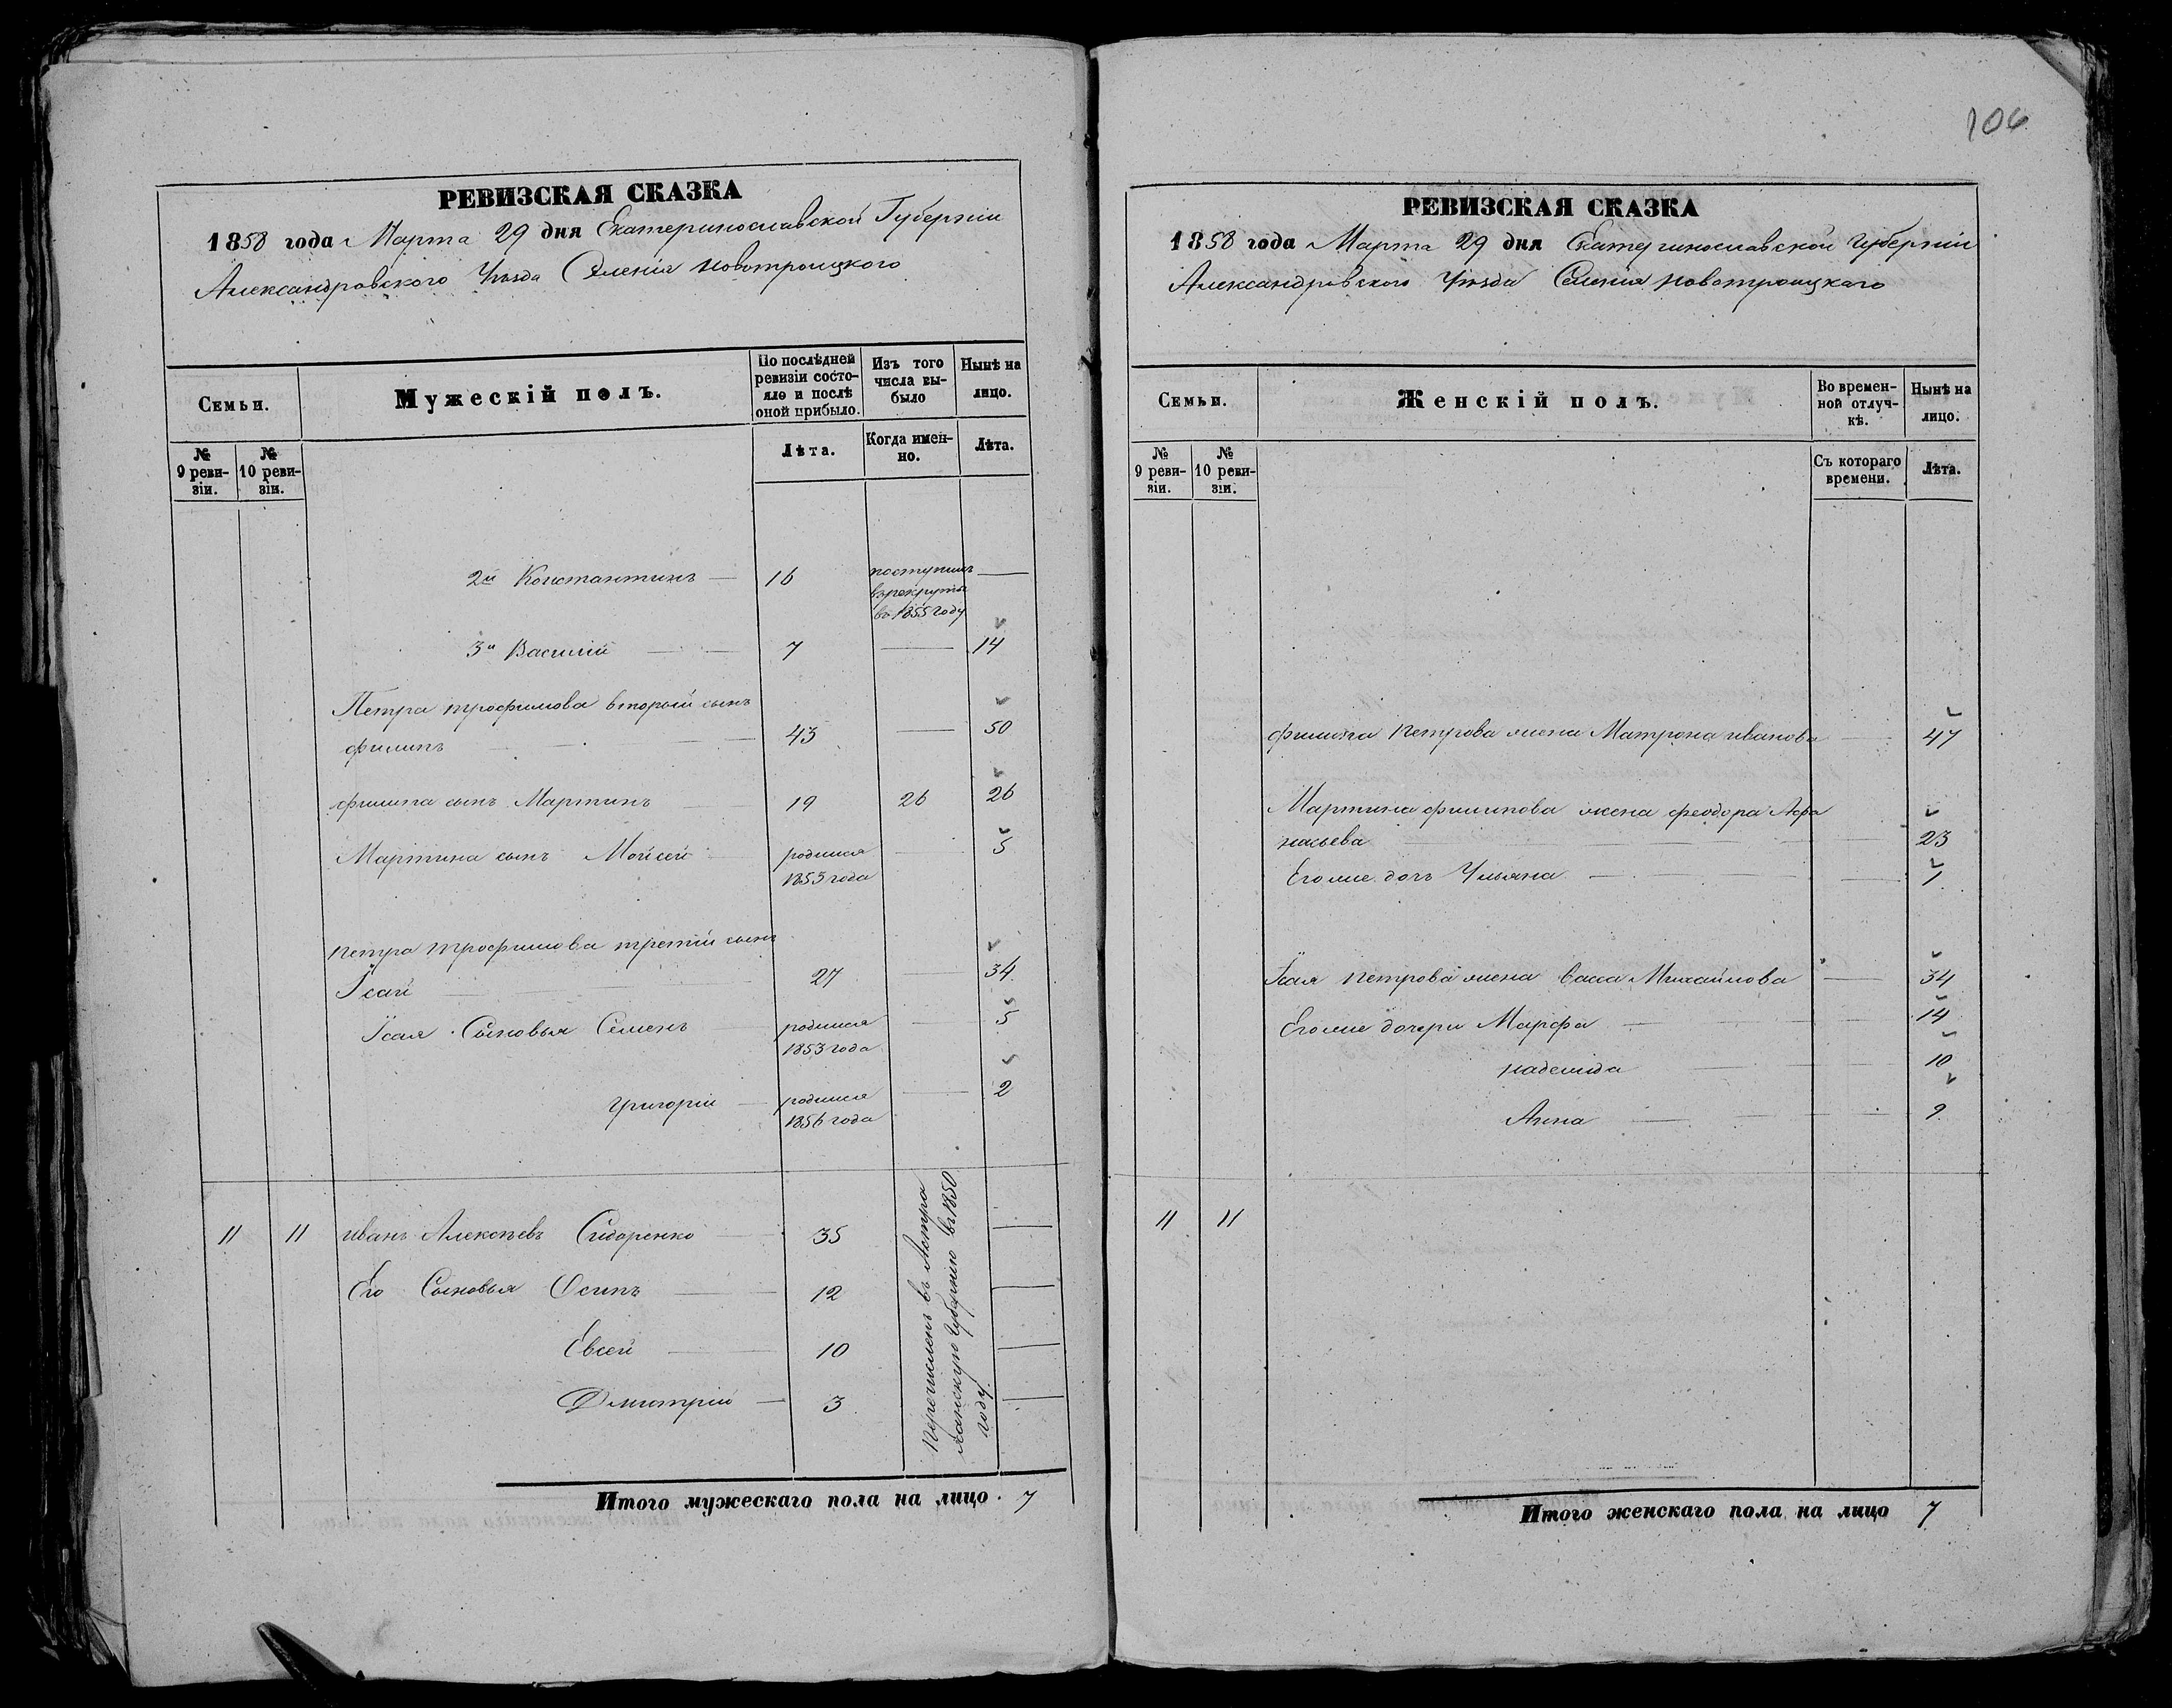 РЕВИЗСКАЯ СКАЗКА
1858 года Марта 29 дня Екатеринославской Губерніи
Александровского Уѣзда Селенія Новотроицкого
Семьи.
Мужескій полъ.
По послѣдней ревизіи состояло и послѣ оной прибыло.
Изъ того числа выбыло
Нынѣ на лицо.
№ 9 ревизіи.
№ 10 ревизіи.
Лѣта.
Когда именно.
Лѣта.
2й Константинъ — 16 поступилъ —
въ рекруты
въ 1855 году
3й Василій — 7 — 14
Петра трофимова вторый сынъ
филипъ — 43 — 50
филипа сынъ Мартинъ — 19 26 26
Мартина сынъ Мойсей родился — 5
1853 года
петра трофимова третій сынъ
Ісай — 27 — 34
Ісая Сыновья Семенъ родился — 5
1853 года
григорій — родился — 2
1856 года
11 11 иванъ Алексѣевъ Сидоренко — 35 —
Его Сыновья Осипъ — 12 —
Евсей — 10 —
Дмитрій — 3 —
перечисленъ въ Астра
ханскую губернію въ 1850
году
Итого мужескаго пола на лицо. 7
106
РЕВИЗСКАЯ СКАЗКА
1858 года Марта 29 дня Екатеринославской губерніи
Александровского Уѣзда Селенія Новотроицкаго
Семьи.
Женскій полъ.
Во временной отлучкѣ.
Нынѣ на лицо.
№ 9 ревизіи.
№ 10 ревизіи.
Съ котораго времени.
Лѣта.
филипа Петрова жена Матрона иванова — 47
Мартина филипова жена феодора Афа
насьева — 23
Его же дочь Ульяна — 1
Ісая Петрова жена Васса Михайлова — 34
Его же дочери Марфа — 14
надежда — 10
Анна — 9
11 11
Итого женскаго пола на лицо 7